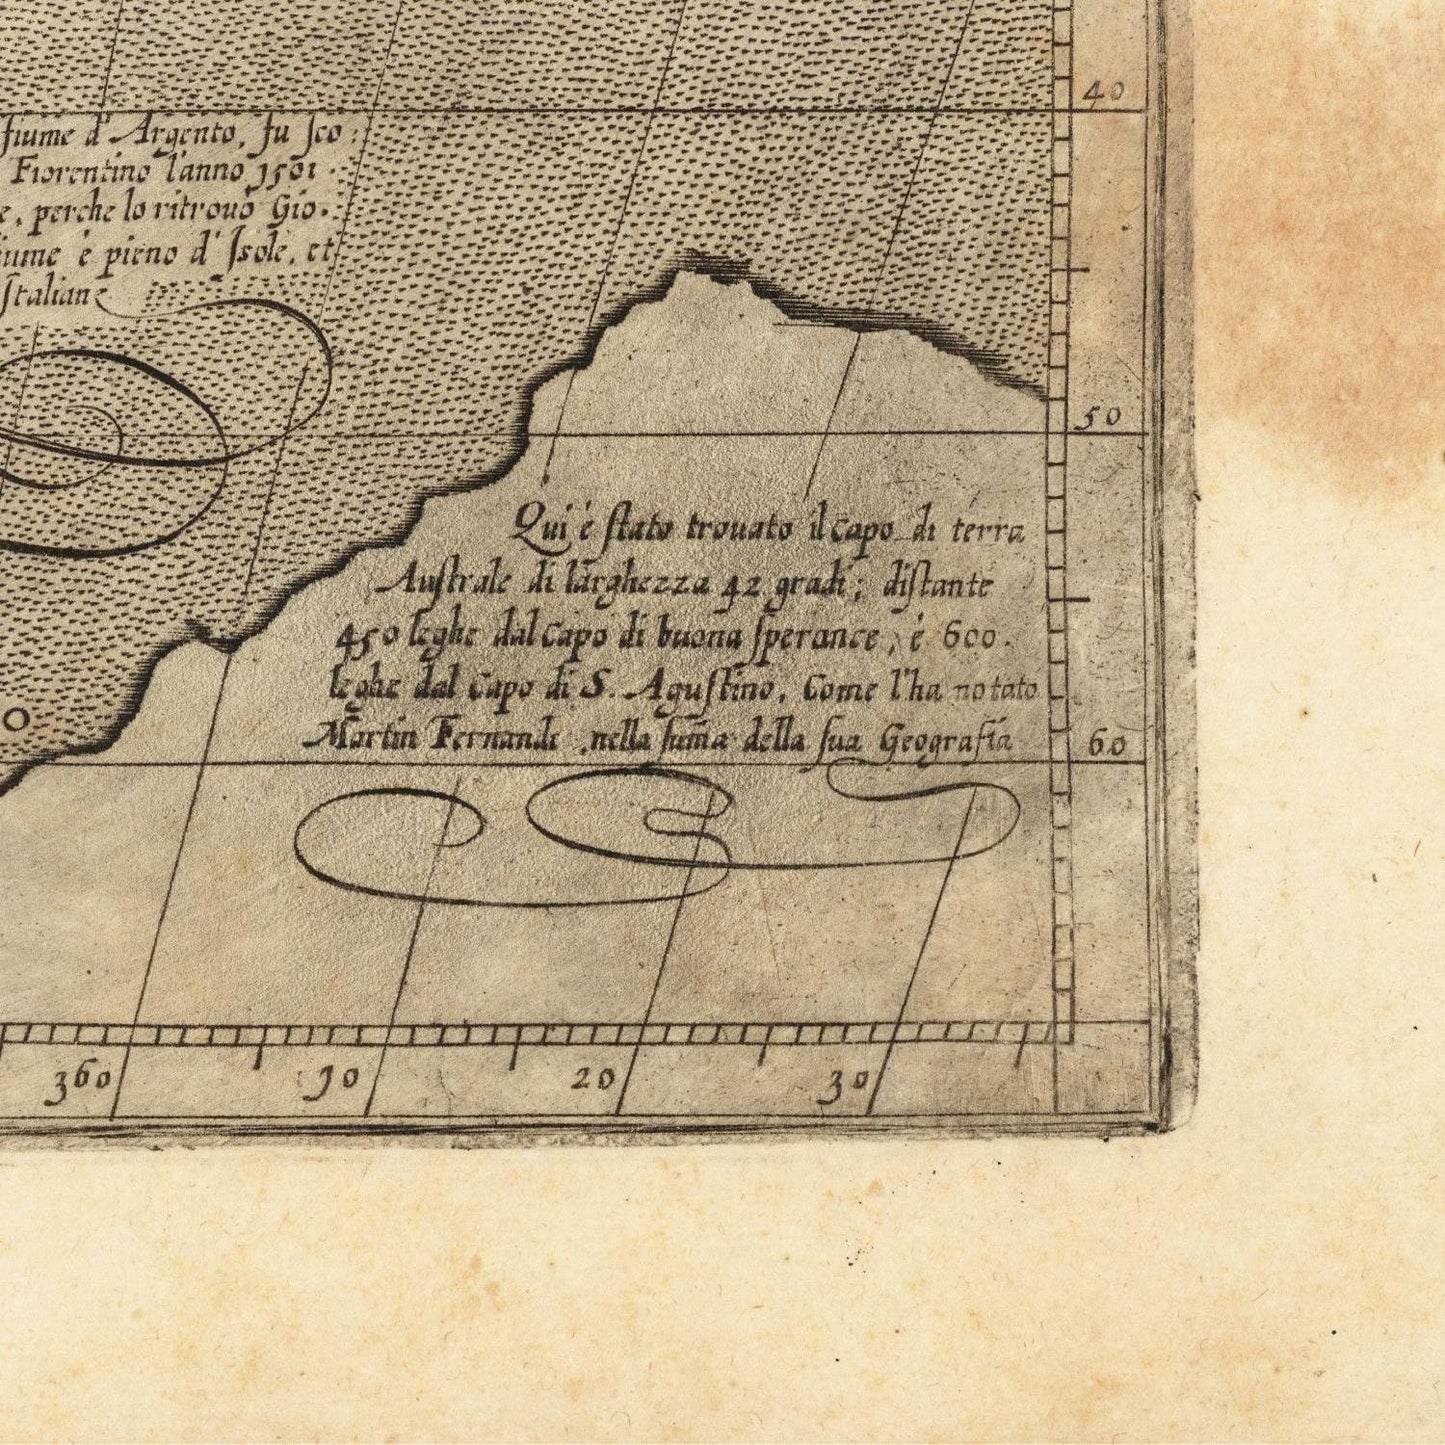 40
fiume d' Argento, fu sco:
Fiorentino l'anno 1501
e, perche lo ritrouò Gio.
iume è pieno d' Isole, et
Italiane
50
Qui è stato trouato il capo di terra
Australe di larghezza 42 gradi; distante
450 leghe dal Capo di buona sperance, è 600.
leghe dal Capo di S. Agustino, Come l'ha notato
Martin Fernande, nella sum̃a della sua Geografia
O
60
360 10 20 30